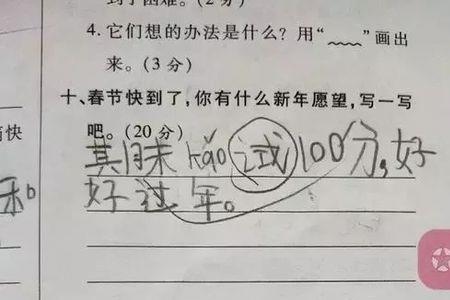 4. 它们想的办法是什么？用“﹏﹏”画出
来。(3 分)
十、春节快到了，你有什么新年愿望，写一写
吧。(20 分)
其月末kǎo试100分，好
好过年。